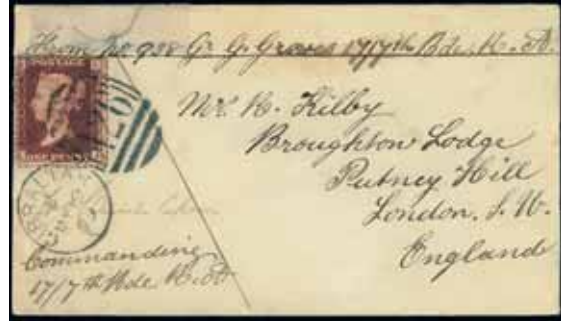 From No 938 Gr G. Graves 17/7th Bde. R. A.
POSTAGE
ONE PENNY
Mr. H. Kilby
Broughton Lodge
Putney Hill
London. S. W.
England
GIBRALTAR
Commanding
17/7th Bde. R. A.